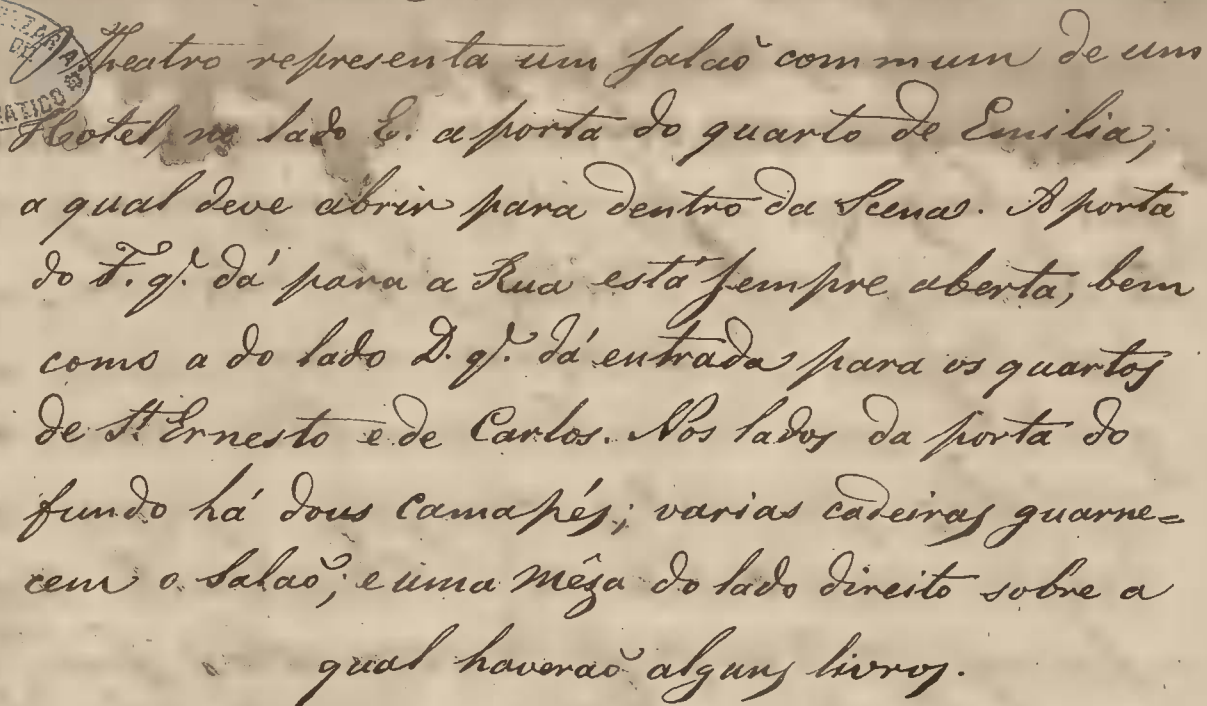 O Theatro representa um salaõ commum de um
Hotel, no lado E. a porta do quarto de Emilia;
a qual deve abrir para dentro da Scena. A porta
do F. q. dá para a Rua está sempre aberta, bem
como a do lado D. q. dá entrada para os quartos
de St. Ernesto e de Carlos. Nos lados da porta do
fundo há dous camapés; varias cadeiras guarne=
cem o salaõ; e uma mêza do lado direito sobre a
qual haveraõ alguns livros.